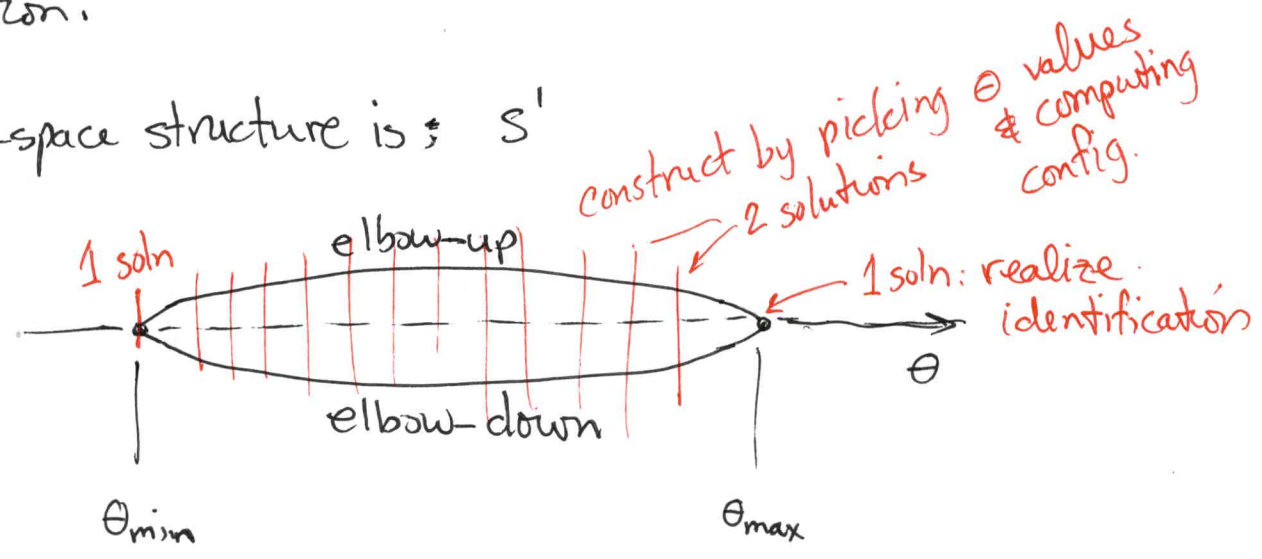 ion.
-space structure is: S'
construct by picking θ values
& computing
config.
2 solutions
elbow-up
1 soln
1 soln: realize
identification
θ
elbow-down
θmin
θmax